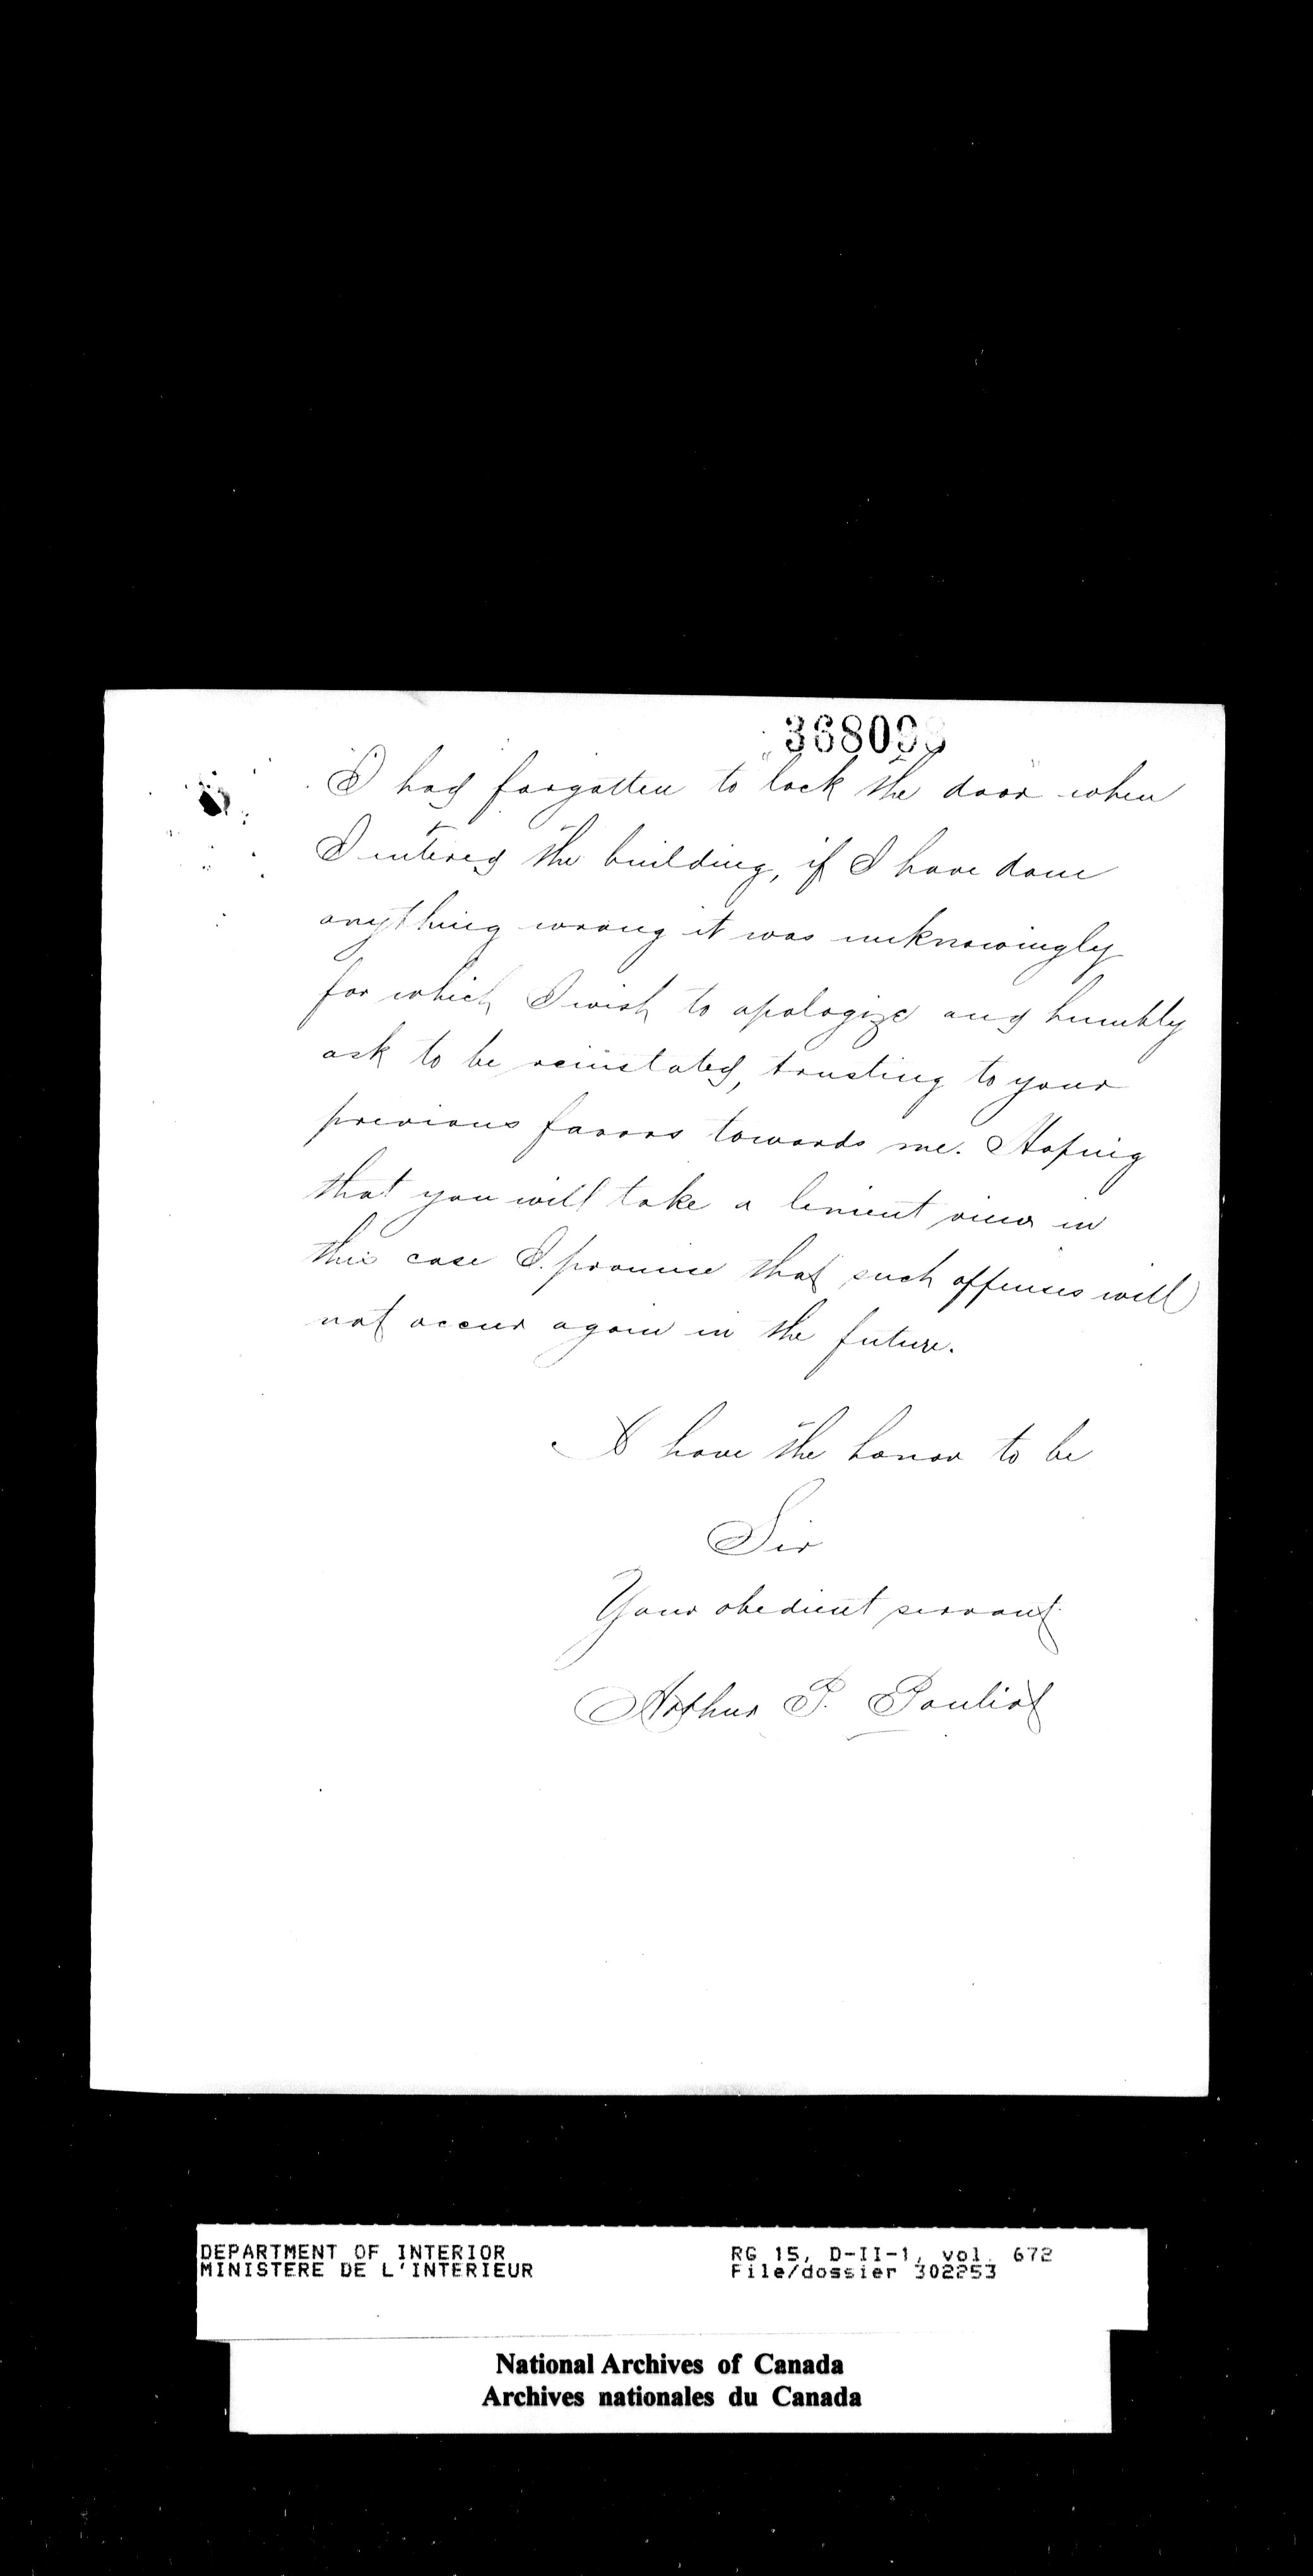 368093
I had forgotten to lock the door when
I entered the building, if I have done
anything wrong it was unknowingly
for which I wish to apologize and humbly
ask to be reinstated, trusting to your
previous favors towards me. Hoping
that you will take a lenient view in
this case I promise that such offenses will
not occur again in the future.
I have the honor to be
Sir
Your obedient servant
Arthur P. Pouliot
DEPARTMENT OF INTERIOR
MINISTERE DE L'INTERIEUR
RG 15, D-II-1, vol. 672
File/dossier 302253
National Archives of Canada
Archives nationales du Canada